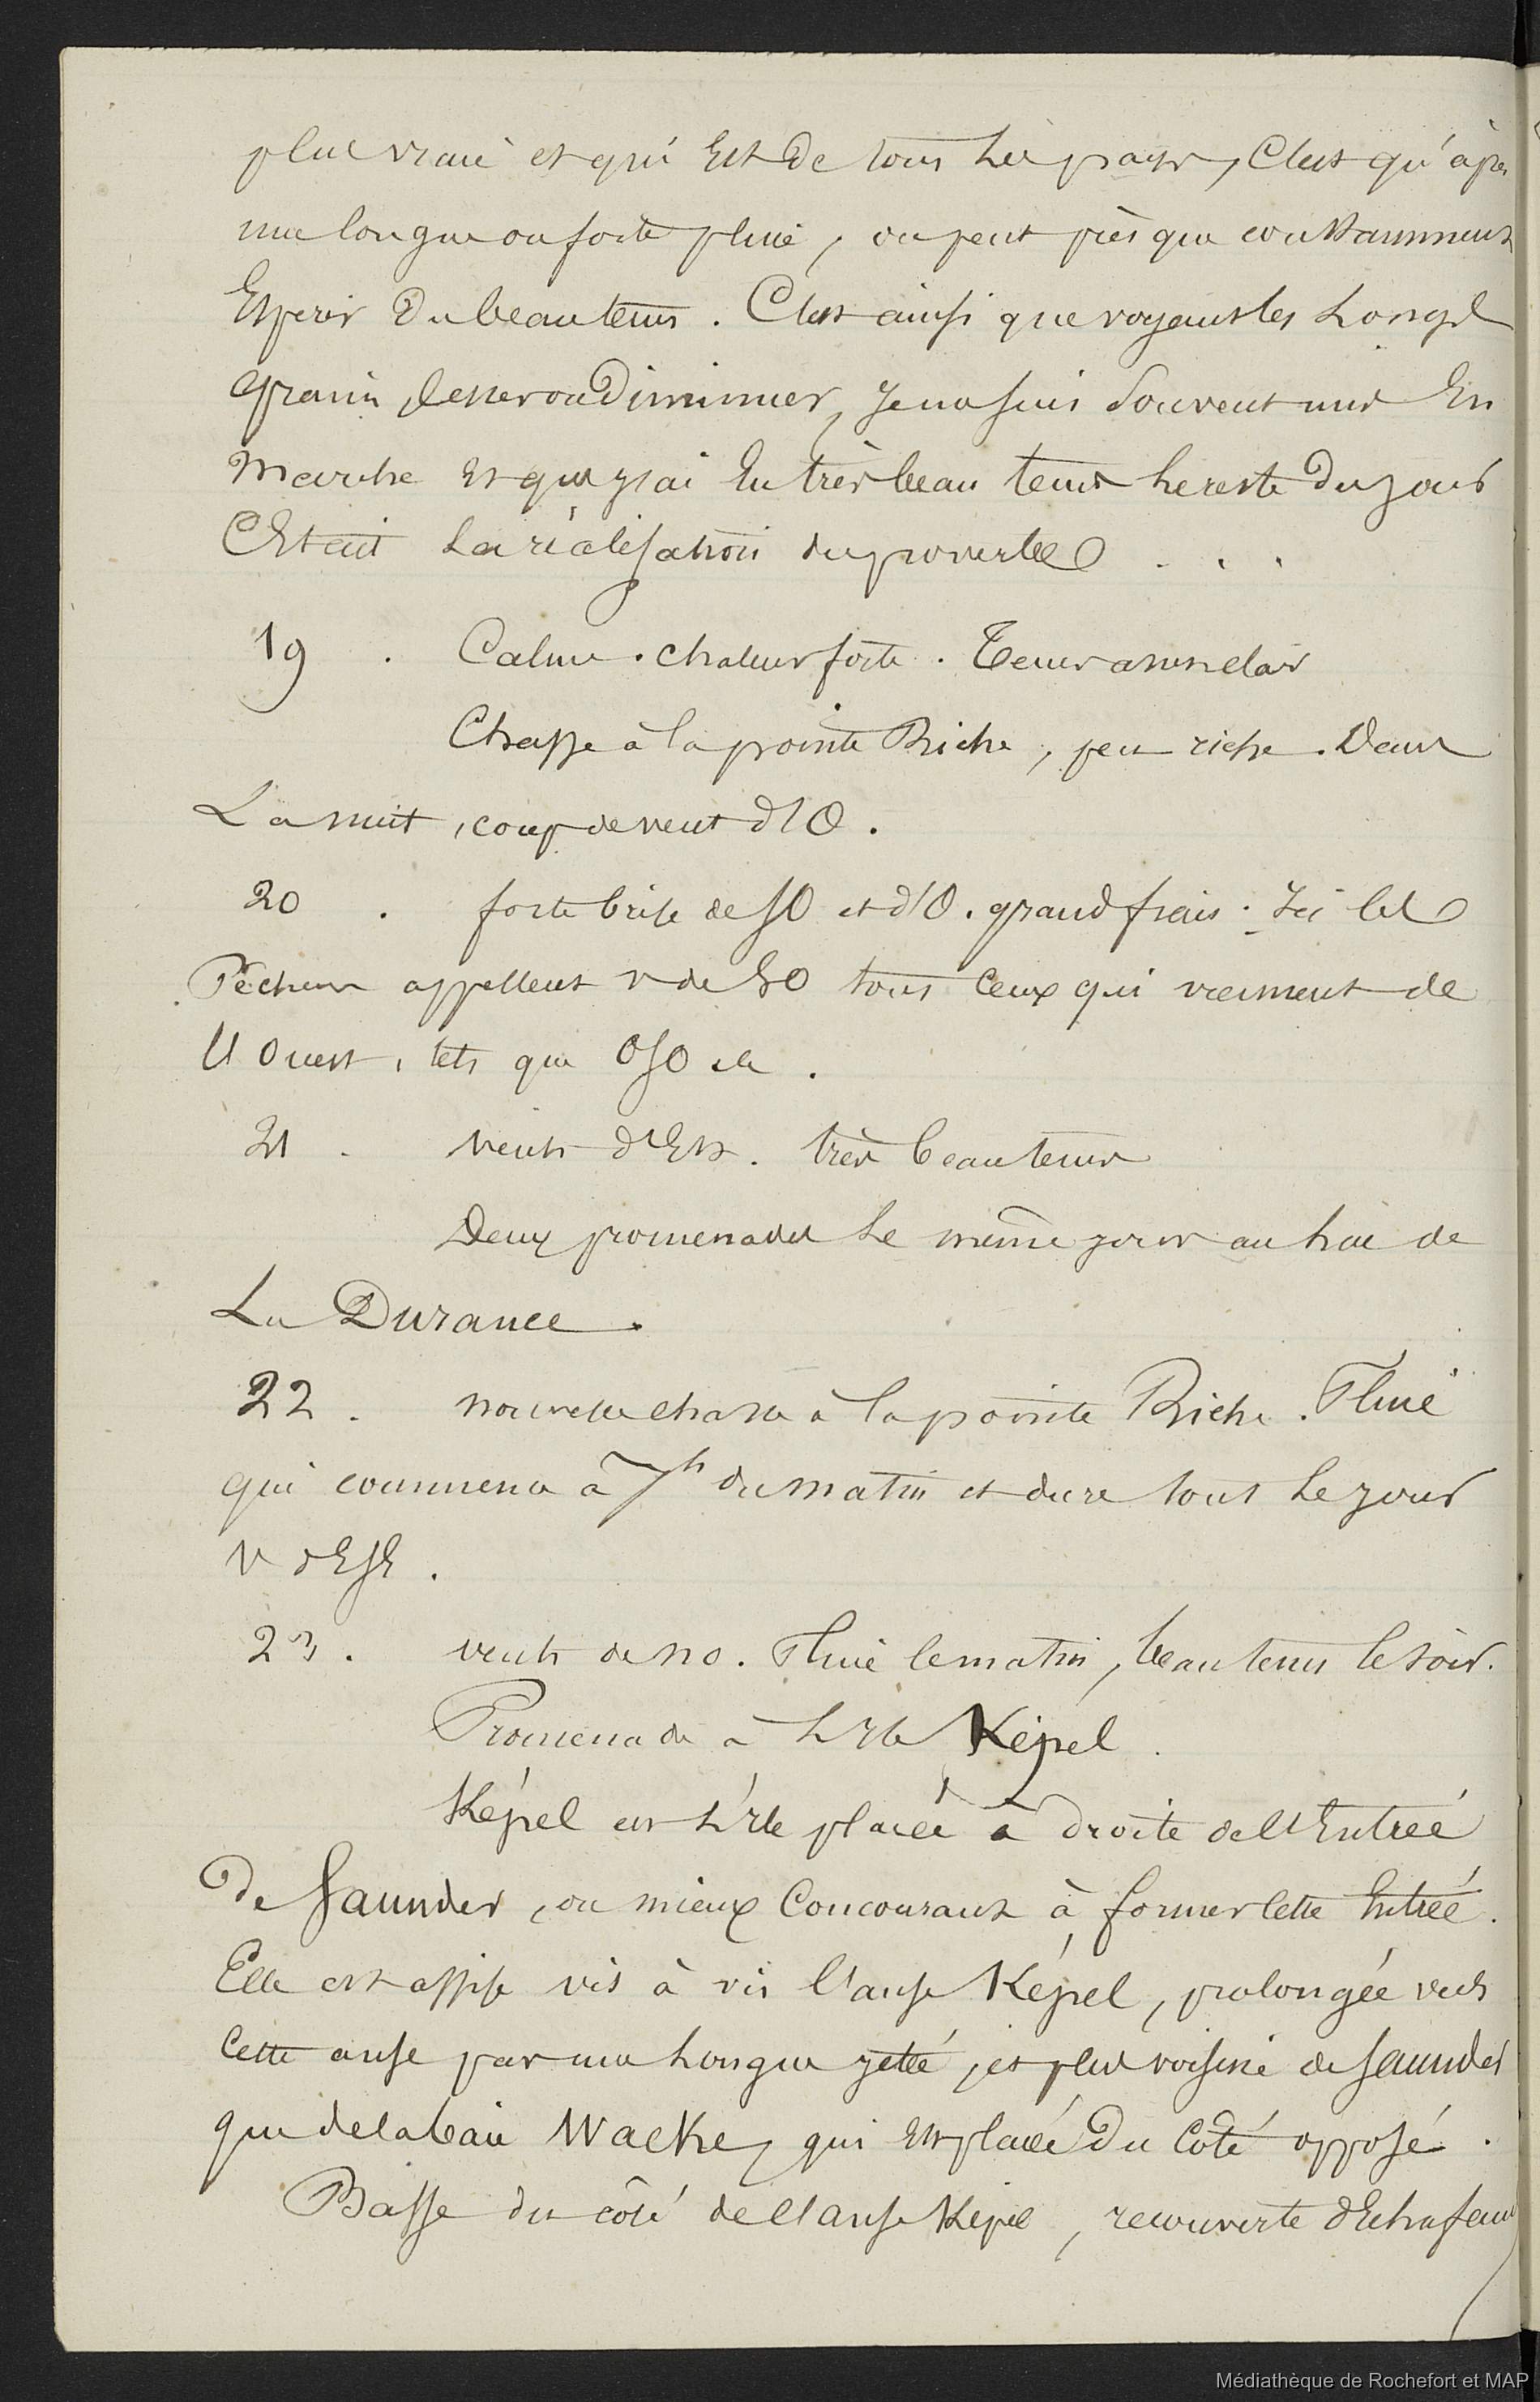 plus vrai et qui Est de tous les pays, C'est qu'après
une longue ou forte pluie, on peut presque constamment
Espérer du beau tems. C'est ainsi que voyant les longs
grains cesser ou diminuer, je me suis souvent mis En
marche et que j'ai Eu très beau tems le reste du jour
C'Etait la réalisation du proverbe . . .
19 . Calme. chaleur forte. Tems assez clair
Chasse à la pointe Riche, peu riche. Dans
La nuit, coup de vent d'O.
20 . forte brise de SO et d'O. grand frais. Ici les
Pêcheurs appellent v de SO tous ceux qui viennent de
l'Ouest, tels que OSO etc.
21 . vents d'Est. très beau tems
Deux promenades le même jour au hâe de
La Durance.
22 . nouvelle chasse à la pointe Riche. Pluie
qui commence à 7h du matin et dure tout le jour
V d'ESE.
23 . vents de no. Pluie le matin, beau tems le soir.
Promenade à L'Ile Képel.
Képel est L'île placée à droite de l'Entrée
De Saunders, ou mieux Concourant à former cette Entrée.
Elle est assise vis à vis l'anse Képel, prolongée vers
Cette anse par une longue jetée, et plus voisine de Saunders
que de la baie Wacke, qui Est placée Du Coté opposé.
Basse du côté de l'anse Képel, recouverte d'Echafauds
Médiathèque de Rochefort et MAP